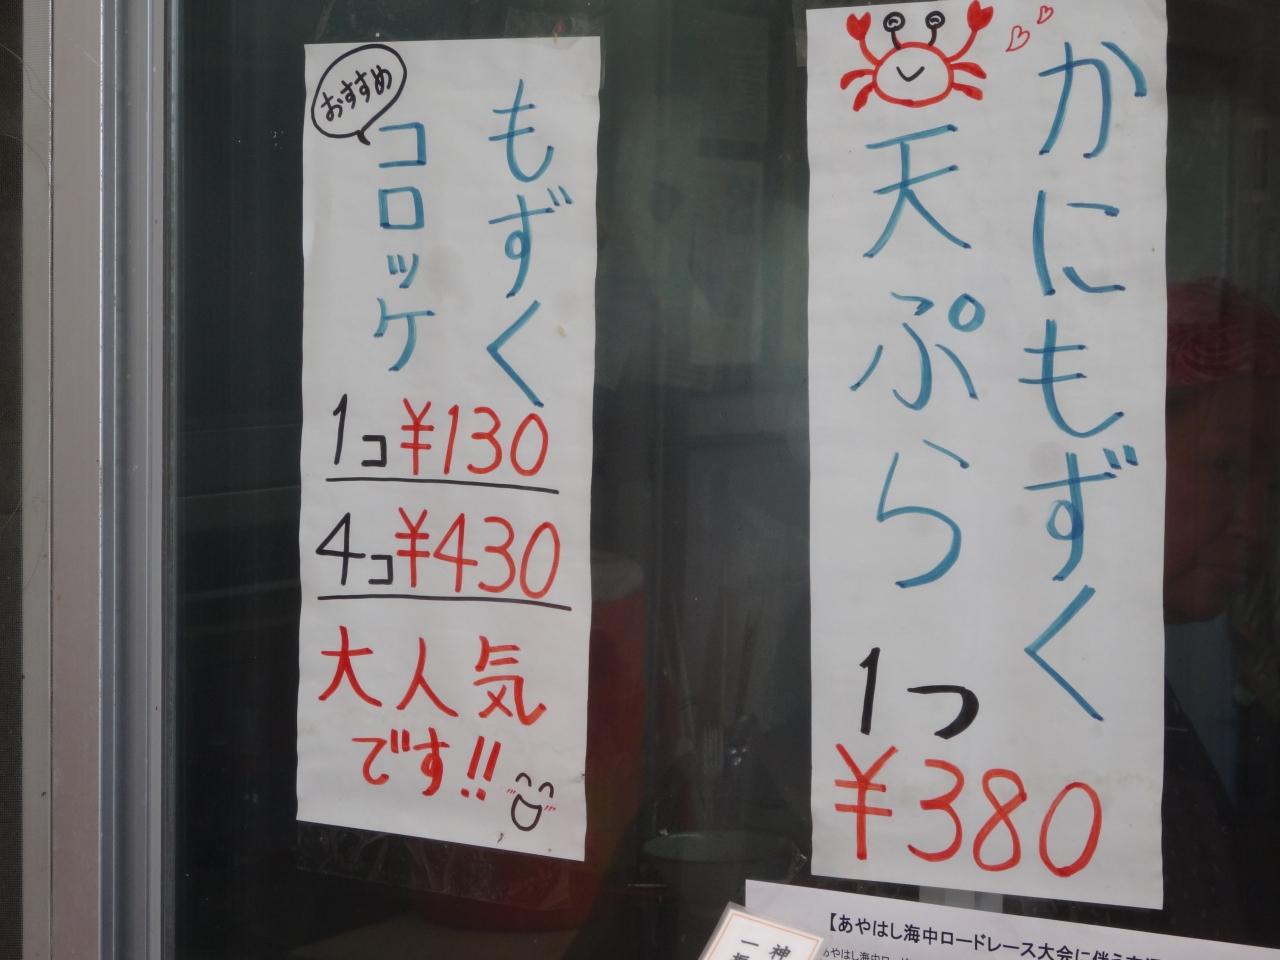 おすすめ
もずく
コロッケ
1コ¥130
4コ¥430
大人気
です!!
かにもずく
天ぷら
1つ
¥380
【あやはし海中ロードレース大会に伴う
神
一